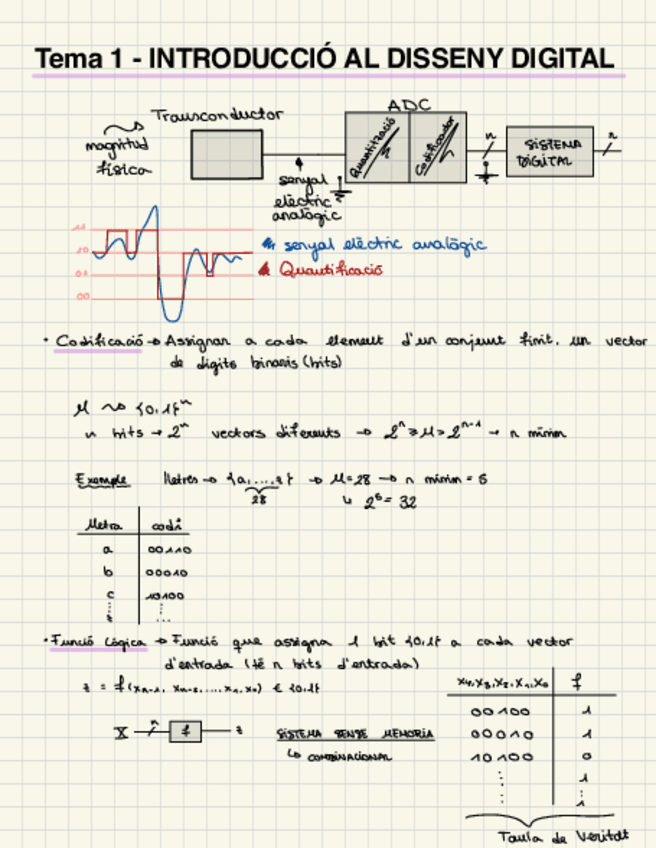 Tema 1 - INTRODUCCIÓ AL DISSENY DIGITAL
ADC
Transconductor
magnitud
física
Quantització
Codificador
n
SISTEMA
DIGITAL
n
senyal
elèctric
analògic
11
10
01
00
senyal elèctric analògic
Quantificació
· Codificació → Assignar a cada element d'un conjunt finit, un vector
de dígits binaris (bits)
M ~> {0,1}ⁿ
n bits → 2ⁿ vectors diferents → 2ⁿ ≥ M > 2ⁿ⁻¹ → n mínim
Exemple Lletres → {a,...,z} → M=28 → n mínim = 5
28
↳ 2⁵ = 32
Lletra codi
a 00110
b 00010
c 10100
⋮ ...
z
· Funció Lògica → Funció que assigna 1 bit {0,1} a cada vector
d'entrada (té n bits d'entrada)
z = f(xₙ₋₁, xₙ₋₂, ..., x₁, x₀) ∈ {0,1}
X n f z
SISTEMA SENSE MEMÒRIA
↳ COMBINACIONAL
x₄,x₃,x₂,x₁,x₀ f
00100 1
00010 1
10100 0
⋮ 1
⋮
1
Taula de Veritat